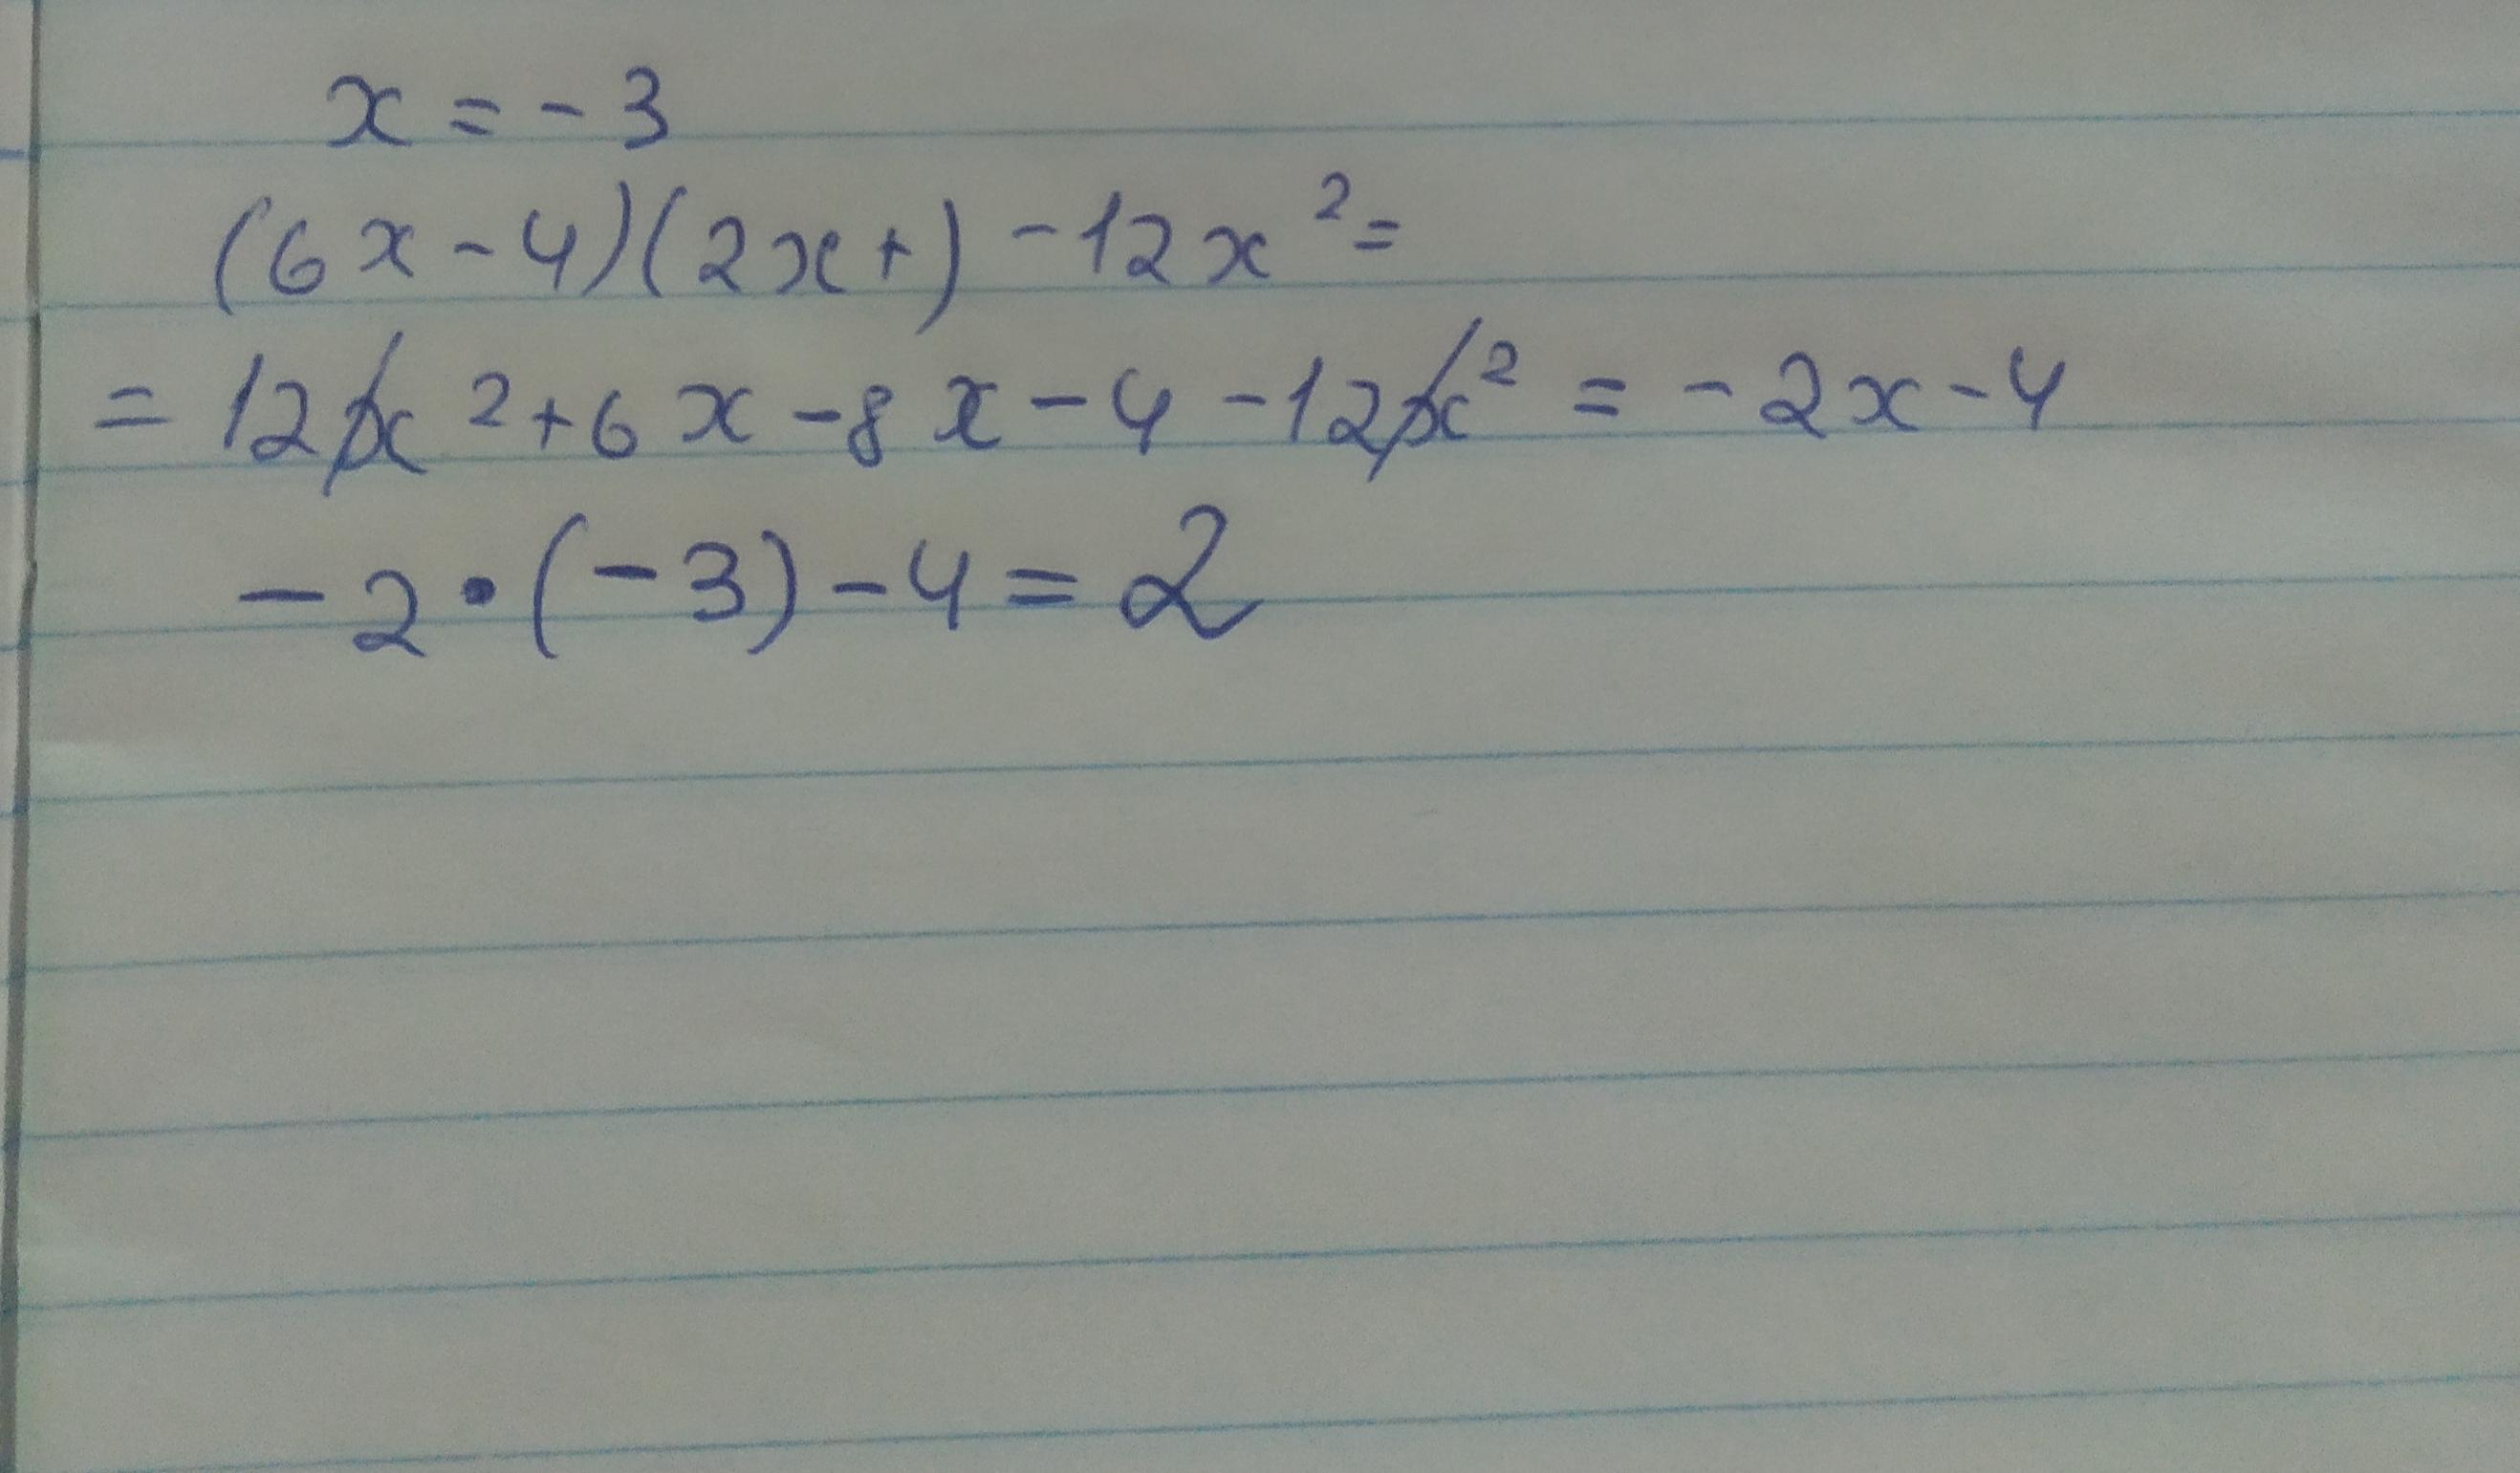 x = - 3
(6x - 4)(2x+) - 12x² =
= 12x² + 6x - 8x - 4 - 12x² = - 2x - 4
- 2 • (- 3) - 4 = 2